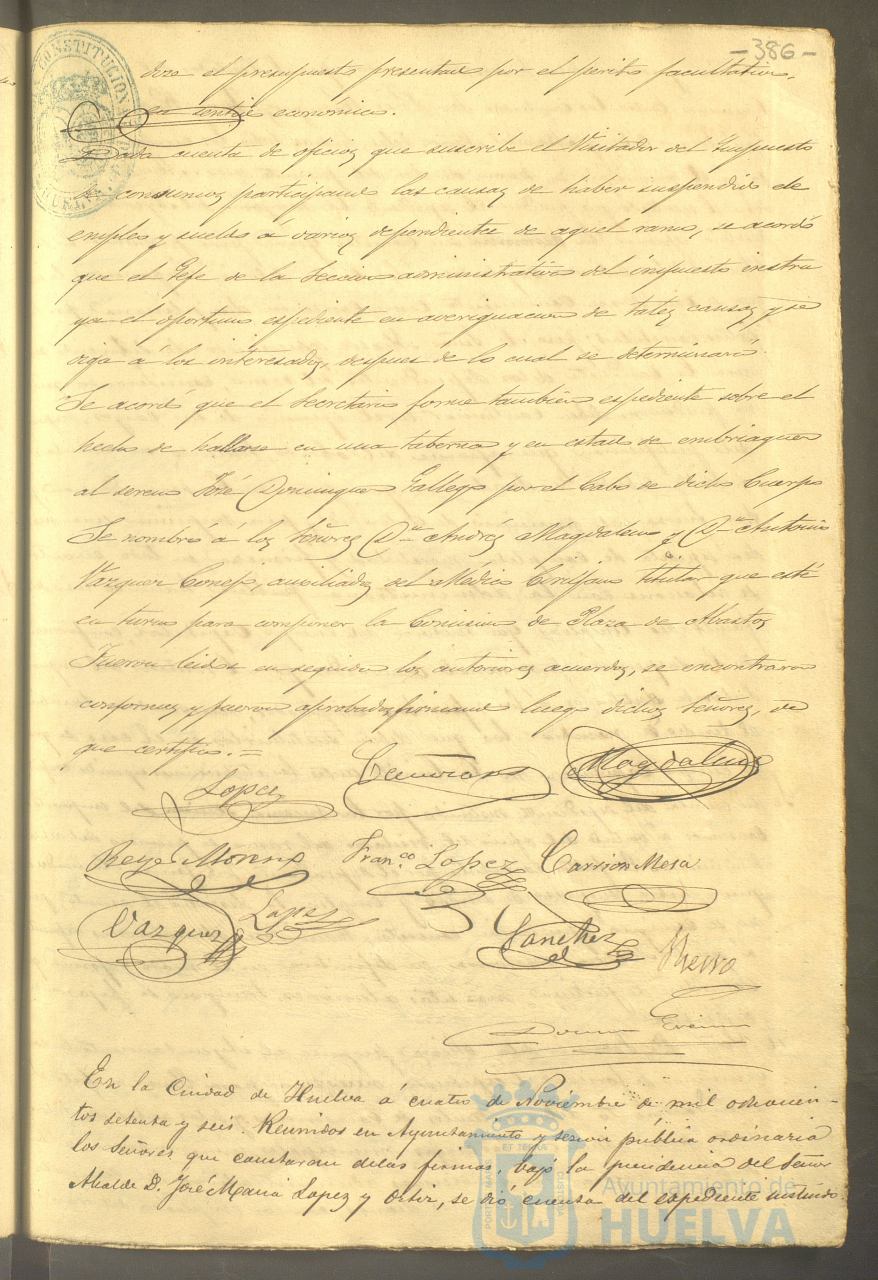 -386-
dose el presupuesto presentado por el perito facultativo,
en sentido económico.
Dada cuenta de oficios que suscribe el Visitador del Impuesto
de consumos participando las causas de haber suspendido de
empleo y sueldo á varios dependientes de aquel ramo, se acordó
que el Gefe de la Seccion administrativa del impuesto instru
ya el oportuno espediente en averiguacion de tales causas y se
oiga á los interesados, despues de lo cual se determinará.
Se acordó que el Secretario forme tambien espediente sobre el
hecho de hallarse en una taberna y en estado de embriaguez
al sereno José Dominguez Gallego por el Cabo de dicho Cuerpo
Se nombró á los Señores Dn Andrés Magdalena y Dn Antonio
Vazquez auxiliados del Médico Cirujano titular que esté
en turno para componer la Comision de Plaza de Abastos
Fueron leidos en seguida los anteriores acuerdos, se encontraron
conformes y fueron aprobados firmando luego dichos Señores, de
que certifico.=
Lopez Magdalena
Reyes Moreno Franco Lopez Carrion Mesa
Vazquez Lopez Sanchez
En la Ciudad de Huelva á cuatro de Noviembre de mil ochocien-
tos setenta y seis. Reunidos en Ayuntamiento y sesion pública ordinaria
los Señores que constaran delas firmas, bajo la presidencia del Señor
Alcalde D. José Maria Lopez y Ortiz, se dió cuenta del espediente instruido
Ayuntamiento de
HUELVA